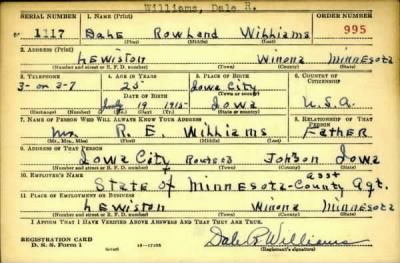 Williams, Dale R.
SERIAL NUMBER 1. NAME (Print) ORDER NUMBER
1117 Dale Rowland Williams 995
(First) (Middle) (Last)
2. ADDRESS (Print)
Lewiston Winona Minnesota
(Number and street or R. F. D. number) (Town) (County) (State)
3. TELEPHONE 4. AGE IN YEARS 5. PLACE OF BIRTH 6. COUNTRY OF CITIZENSHIP
3-on 3-7 25 Iowa City
DATE OF BIRTH (Town or county)
July 19 1915 Iowa U.S.A.
(Exchange) (Number) (Mo.) (Day) (Yr.) (State or country)
7. NAME OF PERSON WHO WILL ALWAYS KNOW YOUR ADDRESS 8. RELATIONSHIP OF THAT PERSON
Mr. R. E. Williams Father
(Mr., Mrs., Miss) (First) (Middle) (Last)
9. ADDRESS OF THAT PERSON
Iowa City Route 5 Iowa
(Number and street or R. F. D. number) (Town) (County) (State)
10. EMPLOYER'S NAME asst
State of Minnesota-County Agt.
11. PLACE OF EMPLOYMENT OR BUSINESS
Lewiston Winona Minnesota
(Number and street or R. F. D. number) (Town) (County) (State)
I AFFIRM THAT I HAVE VERIFIED ABOVE ANSWERS AND THAT THEY ARE TRUE.
REGISTRATION CARD
D. S. S. Form 1 Dale R Williams
(Registrant's signature)